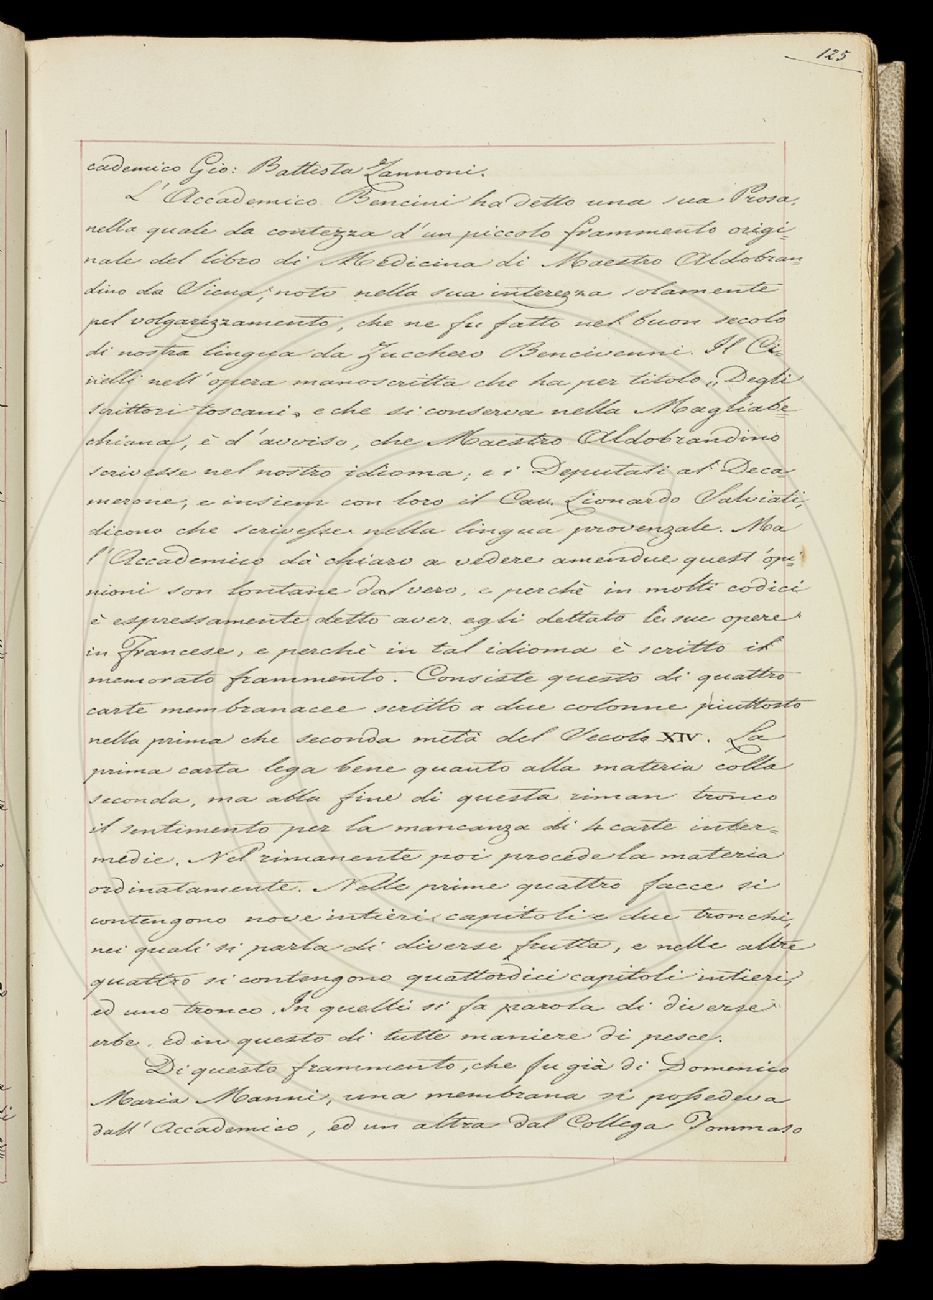 125
cademico Gio: Battista Zannoni.
L'Accademico Bencini ha detto una sua Prosa,
nella quale da contezza d'un piccolo frammento origi=
nale del libro di Medicina di Maestro Aldobran=
dino da Siena, noto nella sua interezza solamente
pel volgarizzamento, che ne fu fatto nel buon secolo
di nostra lingua da Zucchero Bencivenni. Il Ci=
nelli nell'opera manoscritta che ha per titolo „Degli
scrittori toscani„ e che si conserva nella Magliabe=
chiana, è d'avviso, che Maestro Aldobrandino
scrivesse nel nostro idioma; e i Deputati al Deca=
merone, e insiem con loro il Cav. Lionardo Salviati,
dicono che scrivesse nella lingua provenzale. Ma
l'Accademico dà chiaro a vedere amendue quest'opi=
nioni son lontane dal vero, e perchè in molti codici
è espressamente detto aver egli dettato le sue opere
in Francese, e perchè in tal idioma è scritto il
memorato frammento. Consiste questo di quattro
carte membranacee scritto a due colonne piuttosto
nella prima che seconda metà del Secolo XIV. La
prima carta lega bene quanto alla materia colla
seconda, ma alla fine di questa riman tronco
il sentimento per la mancanza di 4 carte inter=
medie. Nel rimanente poi procede la materia
ordinatamente. Nelle prime quattro facce si
contengono nove intieri capitoli e due tronchi,
nei quali si parla di diverse frutta, e nelle altre
quattro si contengono quattordici capitoli intieri,
ed uno tronco. In quelli si fa parola di diverse
erbe, ed in questo di tutte maniere di pesce.
Di questo frammento, che fu già di Domenico
Maria Manni, una membrana si possedeva
dall'Accademico, ed un altra dal Collega Tommaso